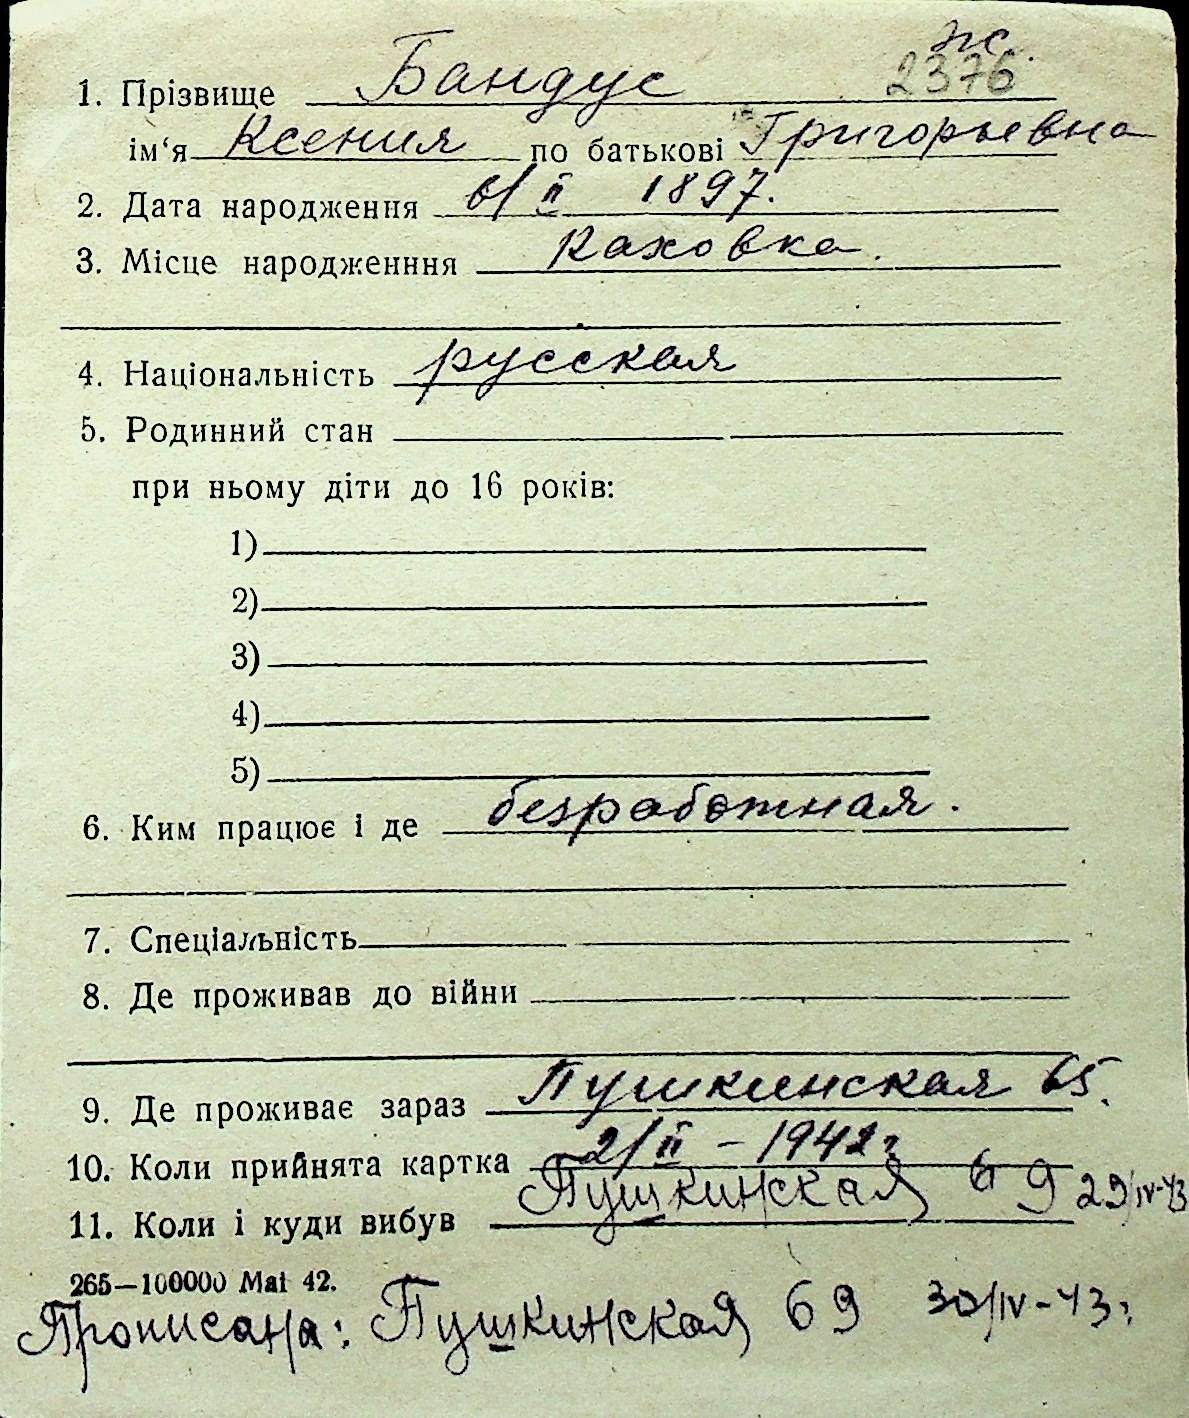 2376
1. Прізвище Бандус
ім‘я Ксения по батькові Григорьевна
2. Дата народження 6/II 1897.
3. Місце народженння Каховка.
4. Національність русская
5. Родинний стан
при ньому діти до 16 років:
1)
2)
3)
4)
5)
6. Ким працює і де безработная.
7. Спеціальність
8. Де проживав до війни
9. Де проживає зараз Пушкинская 65.
10. Коли прийнята картка 2/II - 1942 г
11. Коли і куди вибув Пушкинская 69 29/IV-43
265—100000 Mai 42.
Прописана: Пушкинская 69 30/IV-43 г